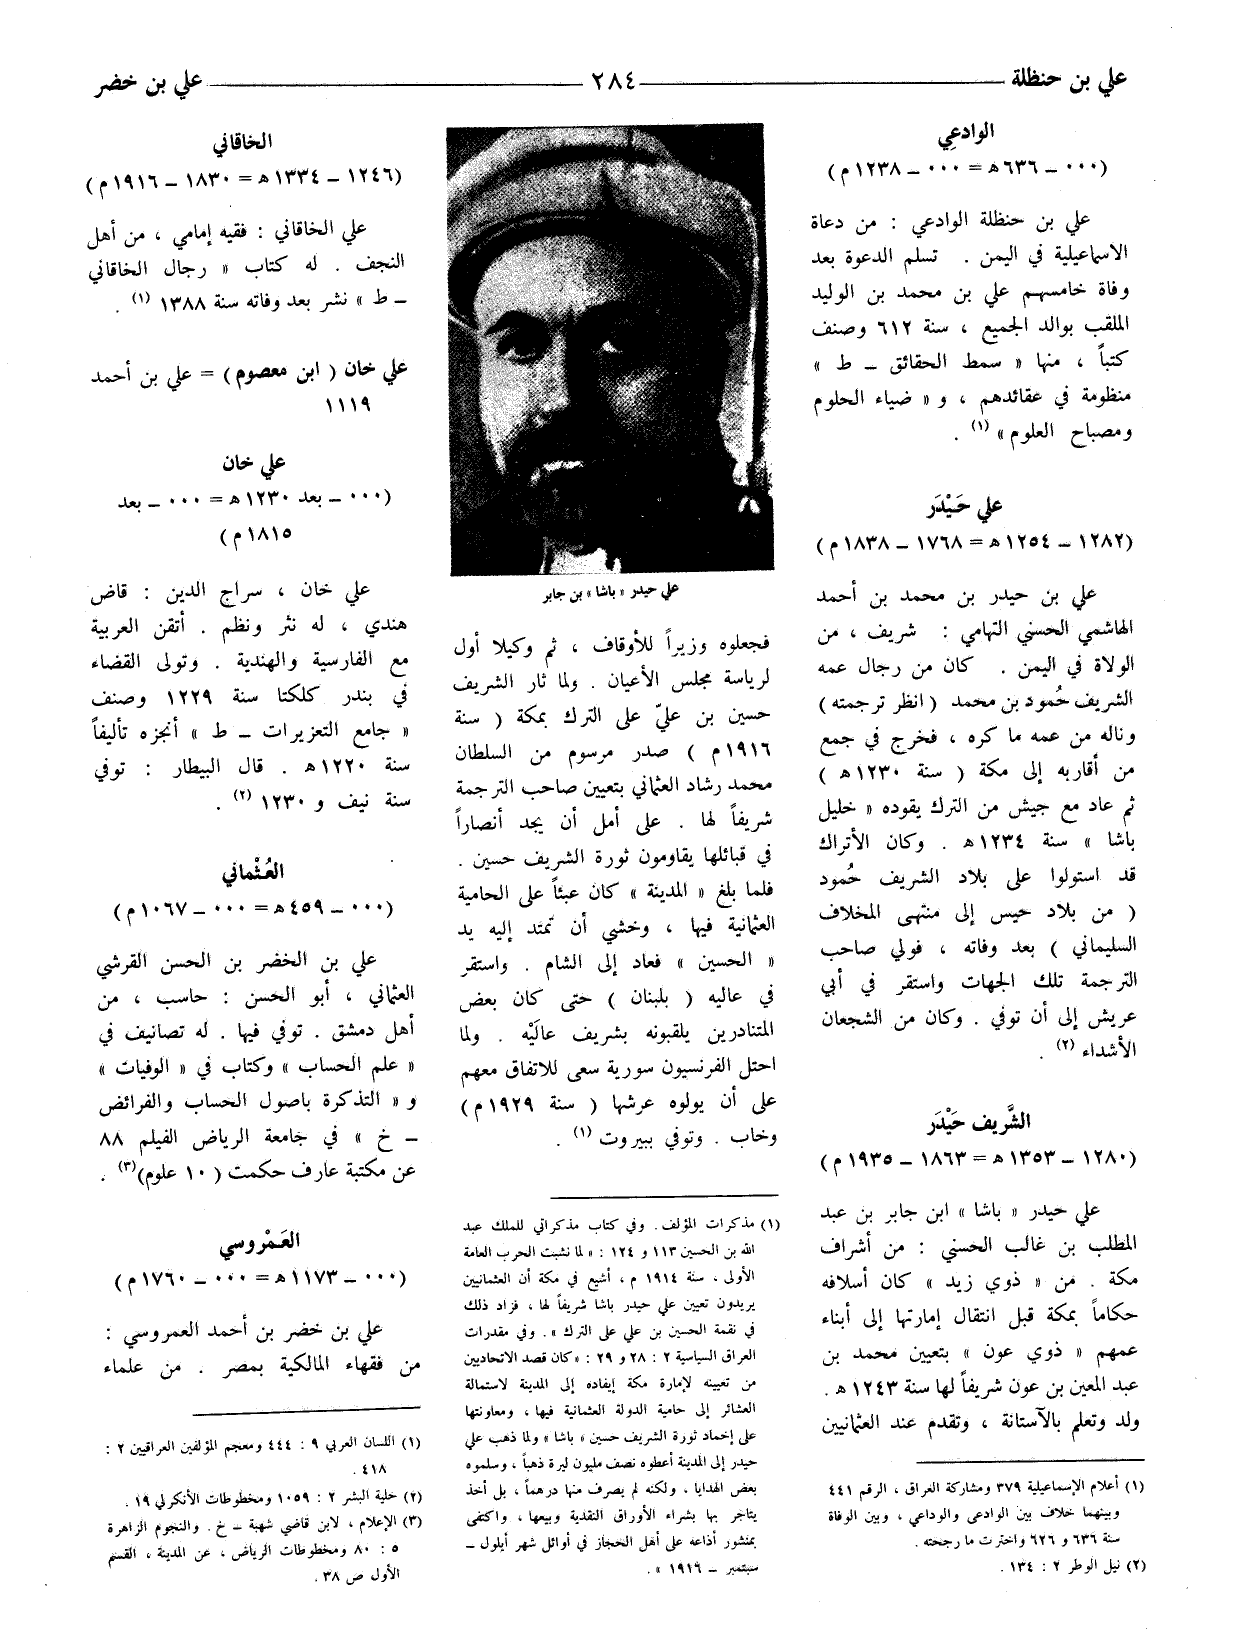 علي بن حنظلة ٢٨٤ علي بن خضر
الوادعي
(٠٠٠ ـ ٦٣٦ هـ = ٠٠٠ ـ ١٢٣٨ م)
علي بن حنظلة الوادعي : من دعاة
الاسماعيلية في اليمن . تسلم الدعوة بعد
وفاة خامسهم علي بن محمد بن الوليد
الملقب بوالد الجميع ، سنة ٦١٢ وصنف
كتباً ، منها « سمط الحقائق ـ ط »
منظومة في عقائدهم ، و « ضياء الحلوم
ومصباح العلوم » (١) .
علي حَيْدَر
(١٢٨٢ ـ ١٢٥٤ هـ = ١٧٦٨ ـ ١٨٣٨ م)
علي بن حيدر بن محمد بن أحمد
الهاشمي الحسني التهامي : شريف ، من
الولاة في اليمن . كان من رجال عمه
الشريف حُمود بن محمد ( انظر ترجمته )
وناله من عمه ما كره ، فخرج في جمع
من أقاربه إلى مكة ( سنة ١٢٣٠ هـ )
ثم عاد مع جيش من الترك يقوده « خليل
باشا » سنة ١٢٣٤ هـ . وكان الأتراك
قد استولوا على بلاد الشريف حُمود
( من بلاد حيس إلى منتهى المخلاف
السليماني ) بعد وفاته ، فولي صاحب
الترجمة تلك الجهات واستقر في أبي
عريش إلى أن توفي . وكان من الشجعان
الأشداء (٢) .
الشَّريف حَيْدَر
(١٢٨٠ ـ ١٣٥٣ هـ = ١٨٦٣ ـ ١٩٣٥ م)
علي حيدر « باشا » ابن جابر بن عبد
المطلب بن غالب الحسني : من أشراف
مكة . من « ذوي زيد » كان أسلافه
حكاماً بمكة قبل انتقال إمارتها إلى أبناء
عمهم « ذوي عون » بتعيين محمد بن
عبد المعين بن عون شريفاً لها سنة ١٢٤٣ هـ .
ولد وتعلم بالآستانة ، وتقدم عند العثمانيين
(١) أعلام الإسماعيلية ٣٧٩ ومشاركة العراق ، الرقم ٤٤١
وبينهما خلاف بين الوادعي والوداعي ، وبين الوفاة
سنة ٦٣٦ و ٦٢٦ واخترت ما رجحته .
(٢) نيل الوطر ٢ : ١٣٤ .
علي حيدر « باشا » بن جابر
فجعلوه وزيراً للأوقاف ، ثم وكيلا أول
لرياسة مجلس الأعيان . ولما ثار الشريف
حسين بن عليّ على الترك بمكة ( سنة
١٩١٦ م ) صدر مرسوم من السلطان
محمد رشاد العثماني بتعيين صاحب الترجمة
شريفاً لها . على أمل أن يجد أنصاراً
في قبائلها يقاومون ثورة الشريف حسين .
فلما بلغ « المدينة » كان عبئاً على الحامية
العثمانية فيها ، وخشي أن تمتد إليه يد
« الحسين » فعاد إلى الشام . واستقر
في عاليه ( بلبنان ) حتى كان بعض
المتنادرين يلقبونه بشريف عالَيْه . ولما
احتل الفرنسيون سورية سعى للاتفاق معهم
على أن يولوه عرشها ( سنة ١٩٢٩ م )
وخاب . وتوفي ببيروت (١) .
(١) مذكرات المؤلف . وفي كتاب مذكراتي للملك عبد
الله بن الحسين ١١٣ و ١٢٤ : « لما نشبت الحرب العامة
الأولى ، سنة ١٩١٤ م ، أشيع في مكة أن العثمانيين
يريدون تعيين علي حيدر باشا شريفاً لها ، فزاد ذلك
في نقمة الحسين بن علي على الترك » . وفي مقدرات
العراق السياسية ٢ : ٢٨ و ٢٩ : « كان قصد الاتحاديين
من تعيينه لإمارة مكة إيفاده إلى المدينة لاستمالة
العشائر إلى حامية الدولة العثمانية فيها ، ومعاونتها
على إخماد ثورة الشريف حسين « باشا » ولما ذهب علي
حيدر إلى المدينة أعطوه نصف مليون ليرة ذهباً ، وسلموه
بعض الهدايا ، ولكنه لم يصرف منها درهماً ، بل أخذ
يتاجر بها بشراء الأوراق النقدية وبيعها ، واكتفى
بمنشور أذاعه على أهل الحجاز في أوائل شهر أيلول ـ
سبتمبر ـ ١٩١٦ » .
الخاقاني
(١٢٤٦ ـ ١٣٣٤ هـ = ١٨٣٠ ـ ١٩١٦ م)
علي الخاقاني : فقيه إمامي ، من أهل
النجف . له كتاب « رجال الخاقاني
ـ ط » نشر بعد وفاته سنة ١٣٨٨ (١) .
علي خان ( ابن معصوم ) = علي بن أحمد
١١١٩
علي خان
(٠٠٠ ـ بعد ١٢٣٠ هـ = ٠٠٠ ـ بعد
١٨١٥ م)
علي خان ، سراج الدين : قاض
هندي ، له نثر ونظم . أتقن العربية
مع الفارسية والهندية . وتولى القضاء
في بندر كلكتا سنة ١٢٢٩ وصنف
« جامع التعزيرات ـ ط » أنجزه تأليفاً
سنة ١٢٢٠ هـ . قال البيطار : توفي
سنة نيف و ١٢٣٠ (٢) .
العُثْماني
(٠٠٠ ـ ٤٥٩ هـ = ٠٠٠ ـ ١٠٦٧ م)
علي بن الخضر بن الحسن القرشي
العثماني ، أبو الحسن : حاسب ، من
أهل دمشق . توفي فيها . له تصانيف في
« علم الحساب » وكتاب في « الوفيات »
و « التذكرة باصول الحساب والفرائض
ـ خ » في جامعة الرياض الفيلم ٨٨
عن مكتبة عارف حكمت ( ١٠ علوم ) (٣) .
العَمْروسي
(٠٠٠ ـ ١١٧٣ هـ = ٠٠٠ ـ ١٧٦٠ م)
علي بن خضر بن أحمد العمروسي :
من فقهاء المالكية بمصر . من علماء
(١) اللسان العربي ٩ : ٤٤٤ ومعجم المؤلفين العراقيين ٢ :
٤١٨ .
(٢) حلية البشر ٢ : ١٠٥٩ ومخطوطات الأنكرلي ١٩ .
(٣) الإعلام ، لابن قاضي شهبة ـ خ . والنجوم الزاهرة
٥ : ٨٠ ومخطوطات الرياض ، عن المدينة ، القسم
الأول ص ٣٨ .